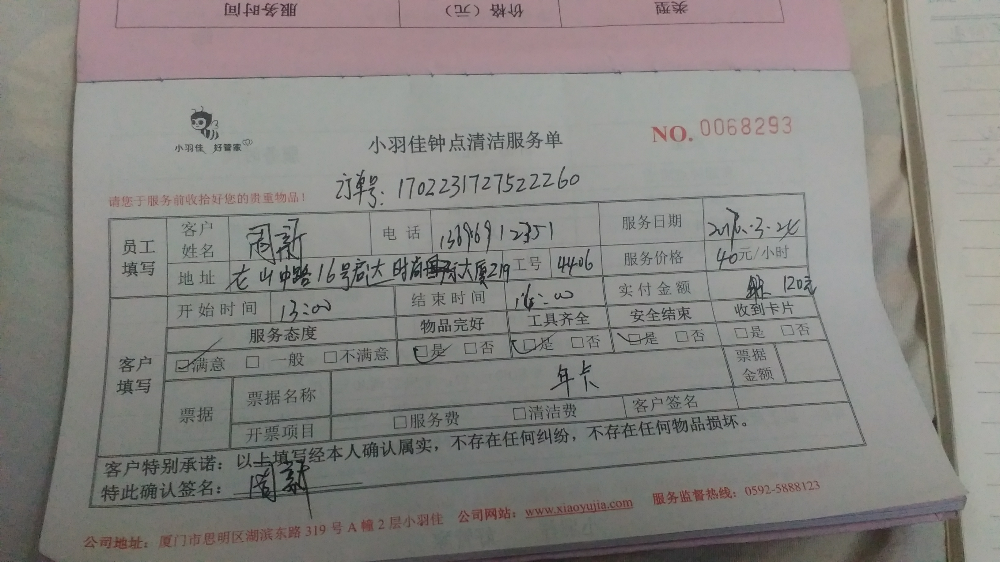 类型 价格（元） 服务时间
小羽佳 好管家
小羽佳钟点清洁服务单
NO. 0068293
订单号：1702231727522260
请您于服务前收拾好您的贵重物品！
员工填写 客户姓名 周新 电话 服务日期
地址 工号 4406 服务价格 40元/小时
客户填写 开始时间 13:00 结束时间 16:00 实付金额 120元
服务态度 物品完好 工具齐全 安全结束 收到卡片
☑满意 □一般 □不满意 ☑是 □否 ☑是 □否 ☑是 □否 □是 □否
票据 票据名称 年卡 票据金额
开票项目 □服务费 □清洁费 客户签名
客户特别承诺：以上填写经本人确认属实，不存在任何纠纷，不存在任何物品损坏。
特此确认签名：周新
公司地址：厦门市思明区湖滨东路 319 号 A 幢 2 层小羽佳 公司网站：www.xiaoyujia.com 服务监督热线：0592-5888123